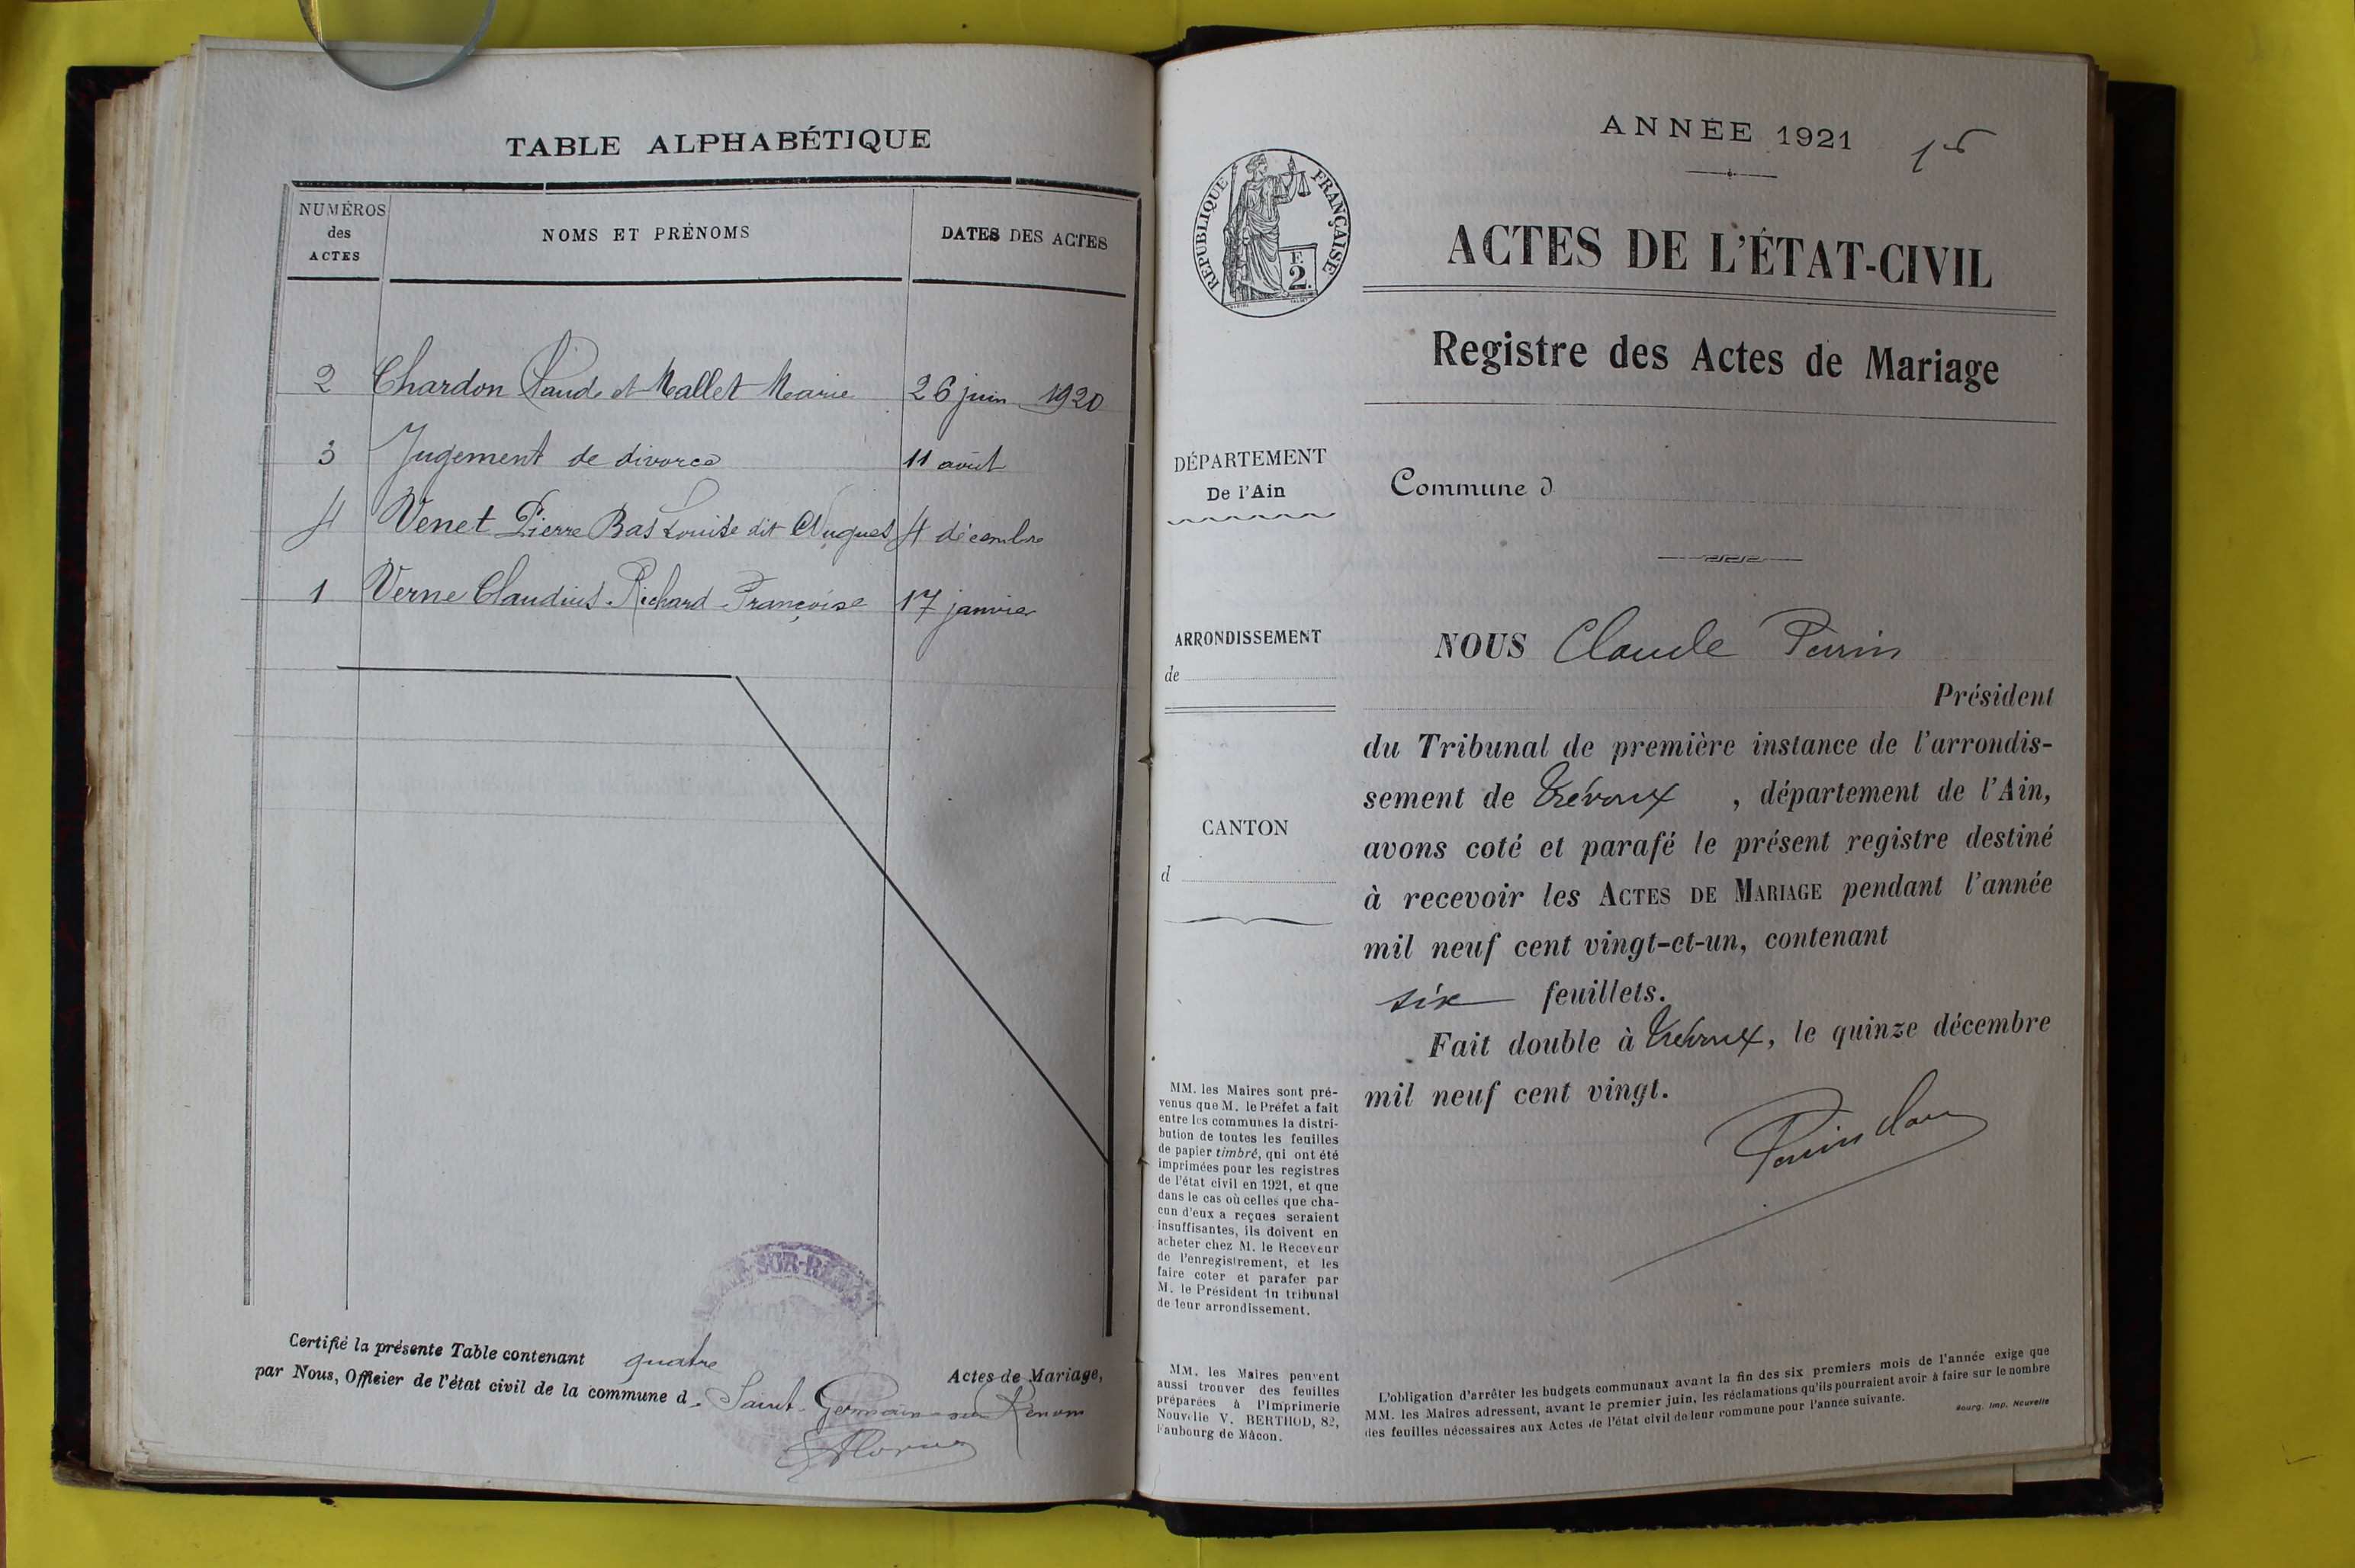 TABLE ALPHABÉTIQUE
NUMÉROS
des
ACTES
NOMS ET PRÉNOMS
DATES DES ACTES
2 Chardon Claude et Mallet Marie 26 juin 1920
3 Jugement de divorce 11 août
4 Venet Pierre Bas Louise dit Clugnet 4 décembre
1 Verne Claudius. Richard Françoise 17 janvier
SUR-RENON
Certifié la présente Table contenant quatre Actes de Mariage,
par Nous, Officier de l'état civil de la commune d. Saint-Germain-sur Renom
ANNÉE 1921
RÉPUBLIQUE FRANÇAISE
F.
2.
ACTES DE L'ÉTAT-CIVIL
Registre des Actes de Mariage
DÉPARTEMENT
De l'Ain
Commune d
ARRONDISSEMENT
de
CANTON
d
NOUS Claude Perrin
Président
du Tribunal de première instance de l'arrondis-
sement de Trévoux , département de l'Ain,
avons coté et parafé le présent registre destiné
à recevoir les ACTES DE MARIAGE pendant l'année
mil neuf cent vingt-et-un, contenant
six feuillets.
Fait double à Trévoux, le quinze décembre
mil neuf cent vingt.
MM. les Maires sont pré-
venus que M. le Préfet a fait
entre les communes la distri-
bution de toutes les feuilles
de papier timbré, qui ont été
imprimées pour les registres
de l'état civil en 1921, et que
dans le cas où celles que cha-
cun d'eux a reçues seraient
insuffisantes, ils doivent en
acheter chez M. le Receveur
de l'enregistrement, et les
faire coter et parafer par
M. le Président du tribunal
de leur arrondissement.
MM. les Maires peuvent
aussi trouver des feuilles
préparées à l'Imprimerie
Nouvelle V. BERTHOD, 82,
Faubourg de Mâcon.
L'obligation d'arrêter les budgets communaux avant la fin des six premiers mois de l'année exige que
MM. les Maires adressent, avant le premier juin, les réclamations qu'ils pourraient avoir à faire sur le nombre
des feuilles nécessaires aux Actes de l'état civil de leur commune pour l'année suivante.
Bourg. Imp. Nouvelle